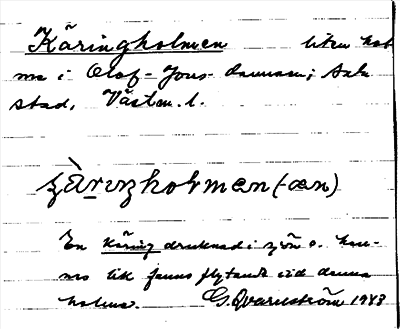 Käringholmen liten hol-
me i Olof-Jons-dammen; Sala
stad, Västm. l.
ʂàrıŋholmen (-æn)
En käring drunknad i sjön o. hen-
nes lik fanns flytande vid denna
holme. G. Qvarnström 1943